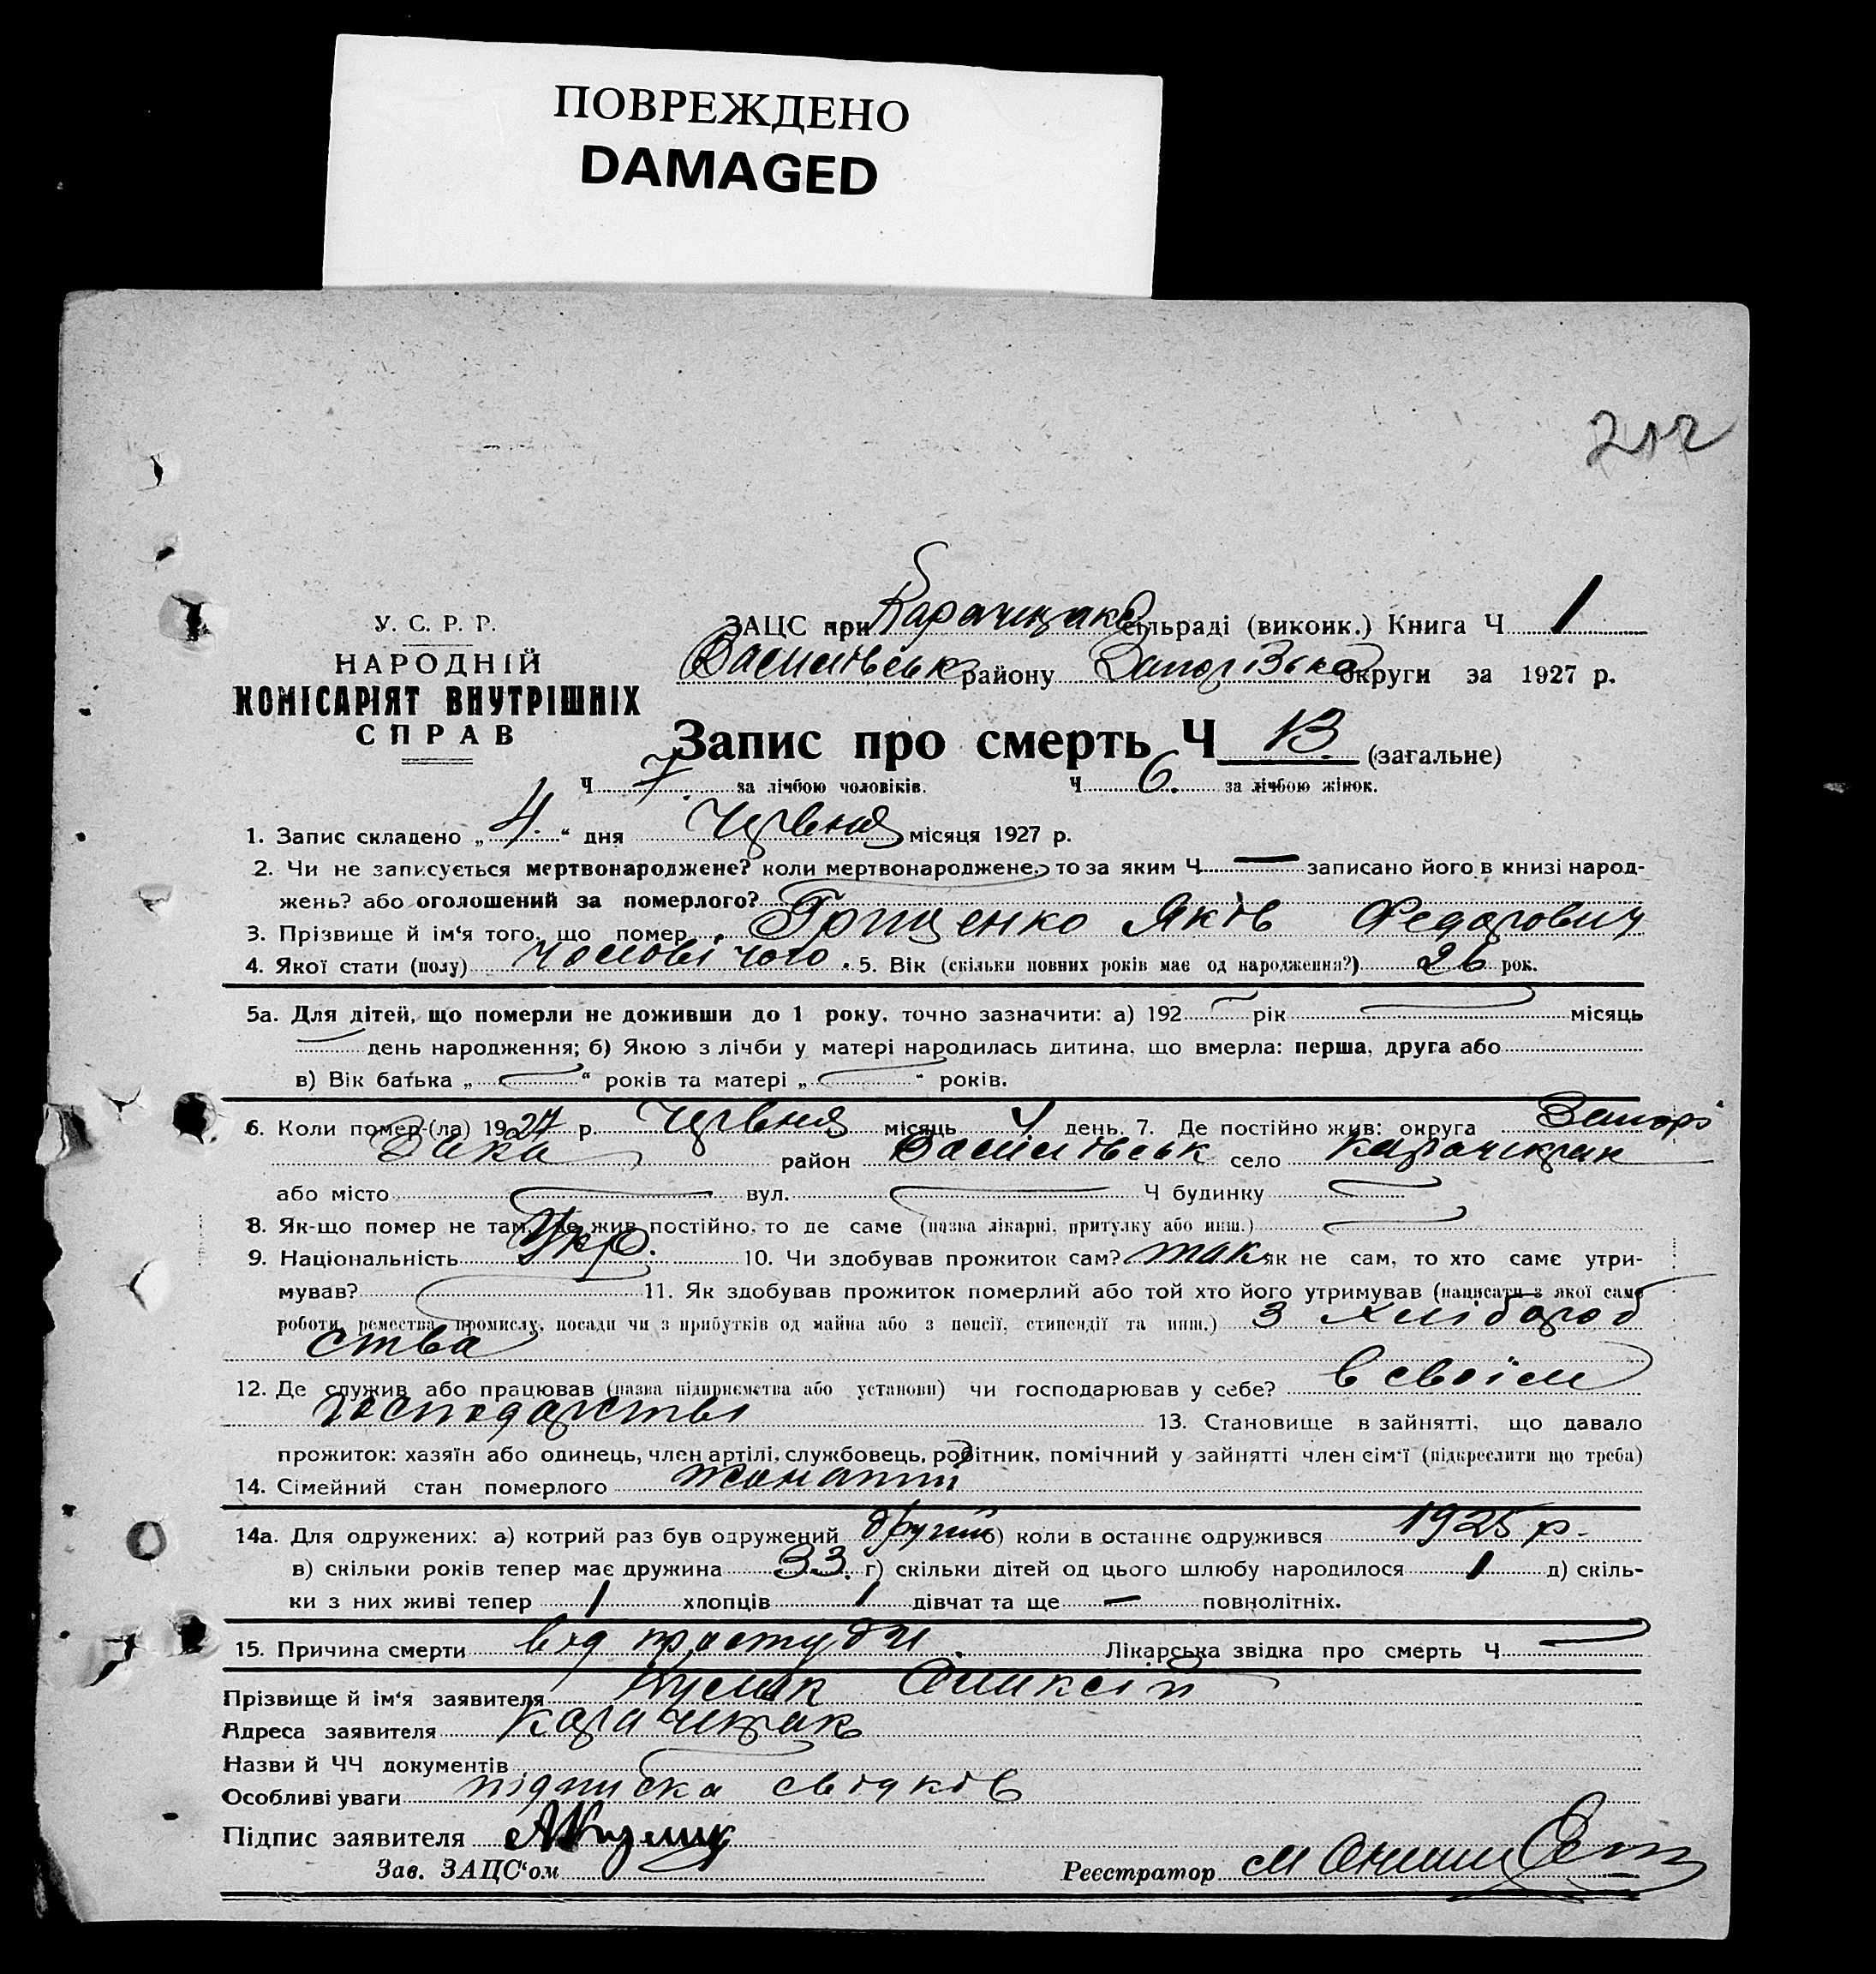 ПОВРЕЖДЕНО
DAMAGED
212
У. С. Р. Р.
НАРОДНІЙ
КОМІСАРІЯТ ВНУТРІШНІХ
СПРАВ
ЗАЦС при сільраді (виконк.) Книга Ч 1
Василівськ району Запорізька округи за 1927 р.
Запис про смерть Ч 13 (загальне)
Ч 7. за лічбою чоловіків. Ч 6. за лічбою жінок.
1. Запис складено „ 4. “ дня Червня місяця 1927 р.
2. Чи не записується мертвонароджене? коли мертвонароджене, то за яким Ч — записано його в книзі народ-
жень? або оголошений за померлого?
3. Прізвище й ім‘я того, що помер Грищенко Яків Федорович
4. Якої стати (полу) чоловічого. 5. Вік (скільки повних років має од народження?) 26 рок.
5а. Для дітей, що померли не доживши до 1 року, точно зазначити: а) 192 рік місяць
день народження; б) Якою з лічби у матері народилась дитина, що вмерла: перша, друга або
в) Вік батька „ “ років та матері „ “ років.
6. Коли помер-(ла) 1927 р. Червня місяць 4 день. 7. Де постійно жив: округа Запорі
зька район Василівськ село Карачикрак
або місто вул. Ч будинку
8. Як-що помер не там, де жив постійно, то де саме (назва лікарні, притулку або инш.)
9. Національність Укр. 10. Чи здобував прожиток сам? так як не сам, то хто саме утри-
мував? 11. Як здобував прожиток померлий або той хто його утримував (написати з якої саме
роботи, ремества, промислу, посади чи з прибутків од майна або з пенсії, стипендії та инш.) З хлібороб
ства
12. Де служив або працював (назва підприємства або установи) чи господарював у себе? в своїм
господарстві 13. Становище в зайнятті, що давало
прожиток: хазяїн або одинець, член артілі, службовець, робітник, помічний у зайнятті член сім‘ї (підкреслити що треба)
14. Сімейний стан померлого жонатий
14а. Для одружених: а) котрий раз був одружений другий б) коли в останнє одружився 1925 р.
в) скільки років тепер має дружина 33. г) скільки дітей од цього шлюбу народилося 1 д) скіль-
ки з них живі тепер 1 хлопців 1 дівчат та ще — повнолітніх.
15. Причина смерти від простуди. Лікарська звідка про смерть Ч
Прізвище й ім‘я заявителя Кулик Олексій
Адреса заявителя Карачикрак
Назви й ЧЧ документів
Особливі уваги підписка свідків
Підпис заявителя АКулик
Зав. ЗАЦС‘ом Реєстратор